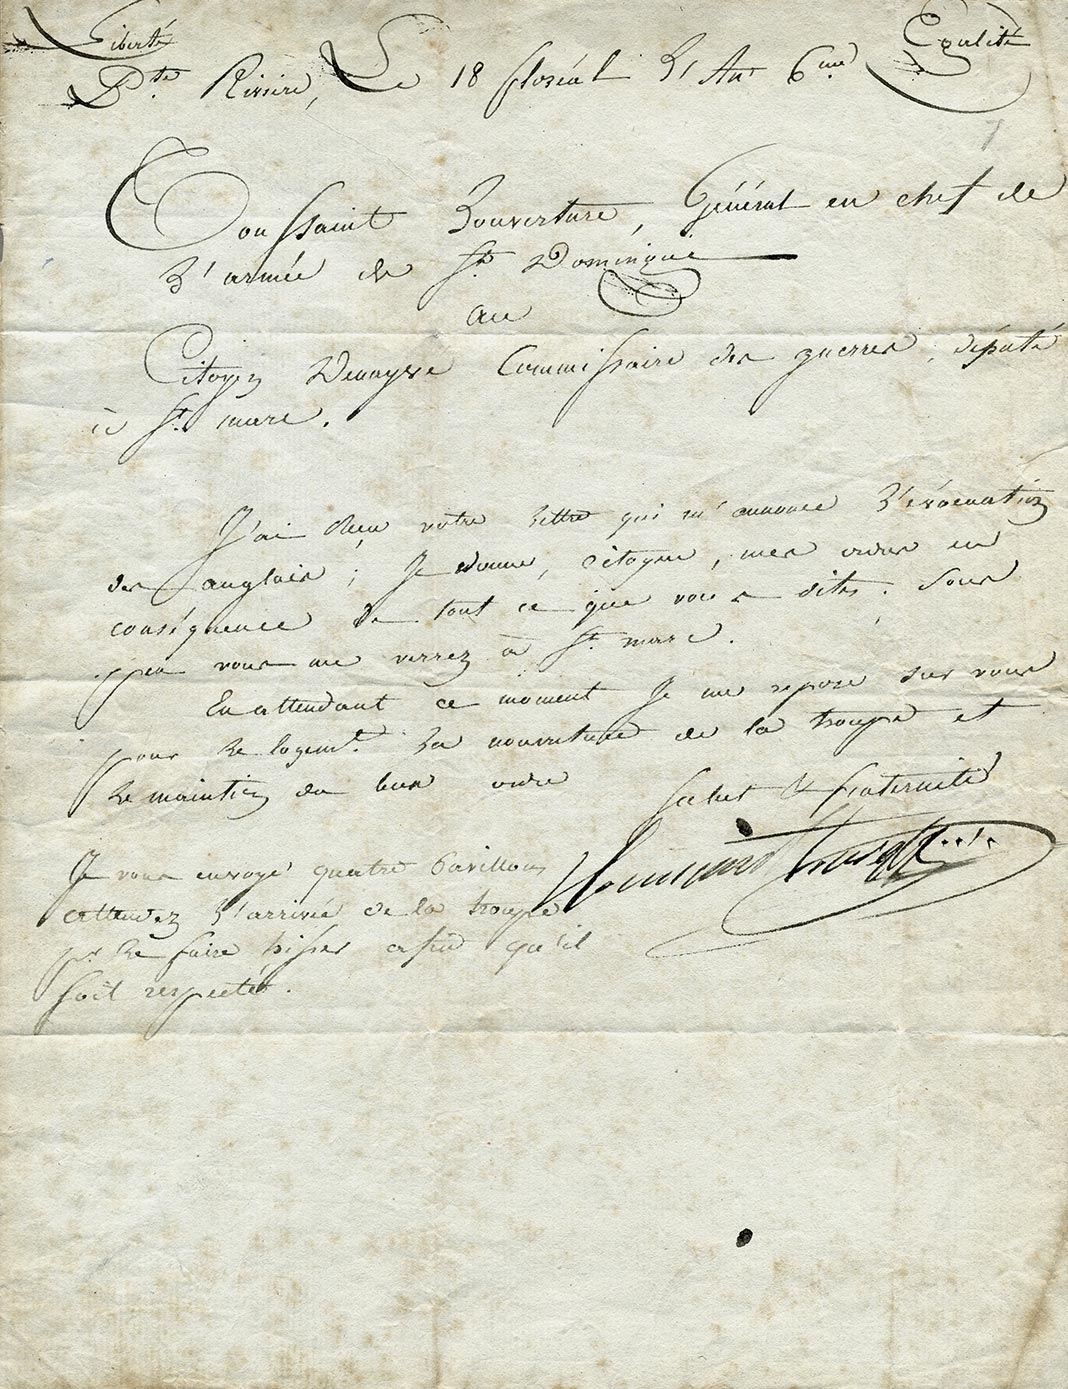 Liberté Egalité
Pte. Riviere, Le 18 floréal L'An 6me
Toussaint Louverture, Général en chef de
L'armée de St. Domingue
au
Citoyen Commissaire des guerres, député
à St. marc.
J'ai Reçu votre Lettre qui m'annonce L'évacuation
des anglais ; Je donne, Citoyen, mes ordres en
conséquence de tout ce que vous dites. Sous
peu vous me verrez à St. marc.
En attendant ce moment Je me repose sur vous
pour Le logemt. La nourriture de la troupe et
Le maintien du bon ordre
Salut & fraternité
Toussaint Louverture
Je vous envoye quatre Pavillons
attendez L'arrivée de la troupe
pr. Le faire hisser afin qu'il
soit respecté.